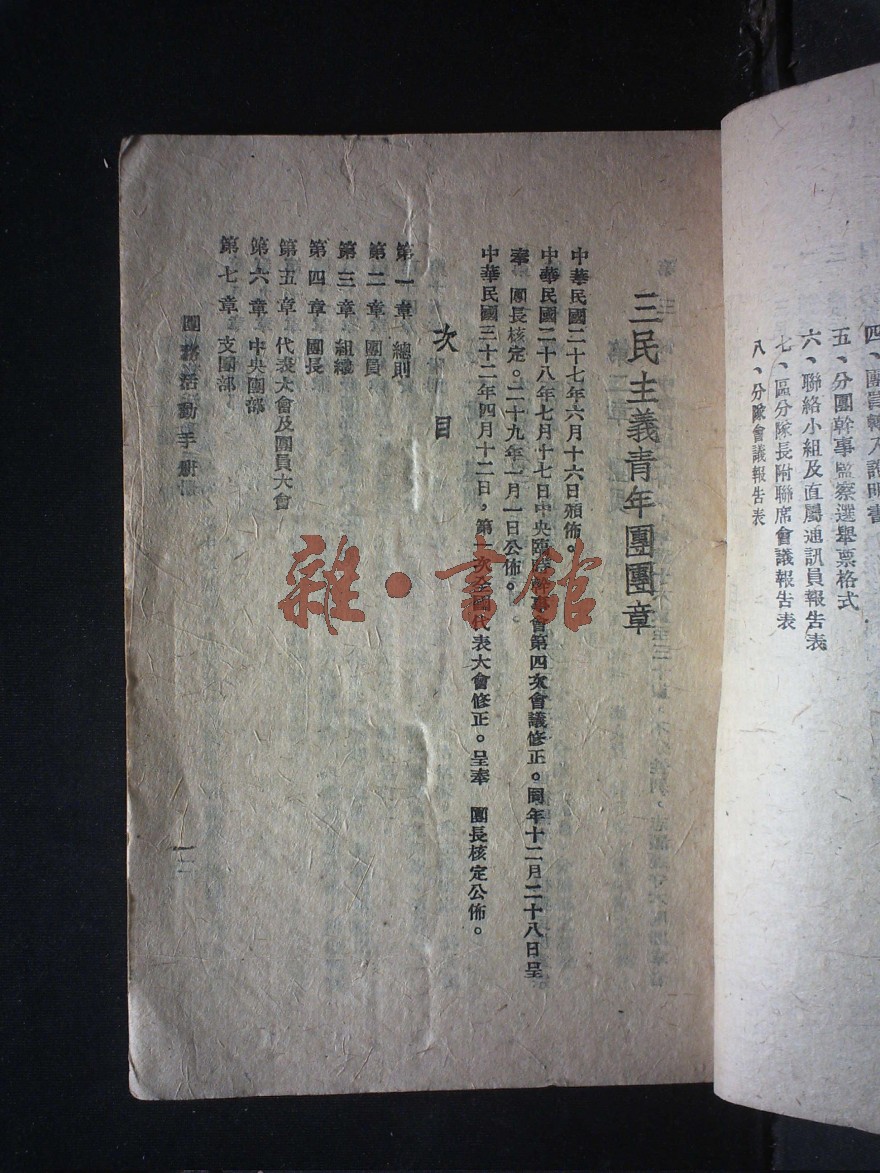 四、團員轉入證明書
五、分團幹事監察選舉票格式
六、聯絡小組及直屬通訊員報告表
七、區分隊長附聯席會議報告表
八、分隊會議報告表
三民主義青年團團章
中華民國二十七年六月十六日頒佈。
中華民國二十八年七月十七日中央臨時幹事會第四次會議修正。同年十二月二十八日呈
奉　團長核定。二十九年一月一日公佈。
中華民國三十二年四月十二日，第一次全國代表大會修正。呈奉　團長核定公佈。
次　目
第一章　總則
第二章　團員
第三章　組織
第四章　團長
第五章　代表大會及團員大會
第六章　中央團部
第七章　支團部
團務活動手册
一
雜·書館